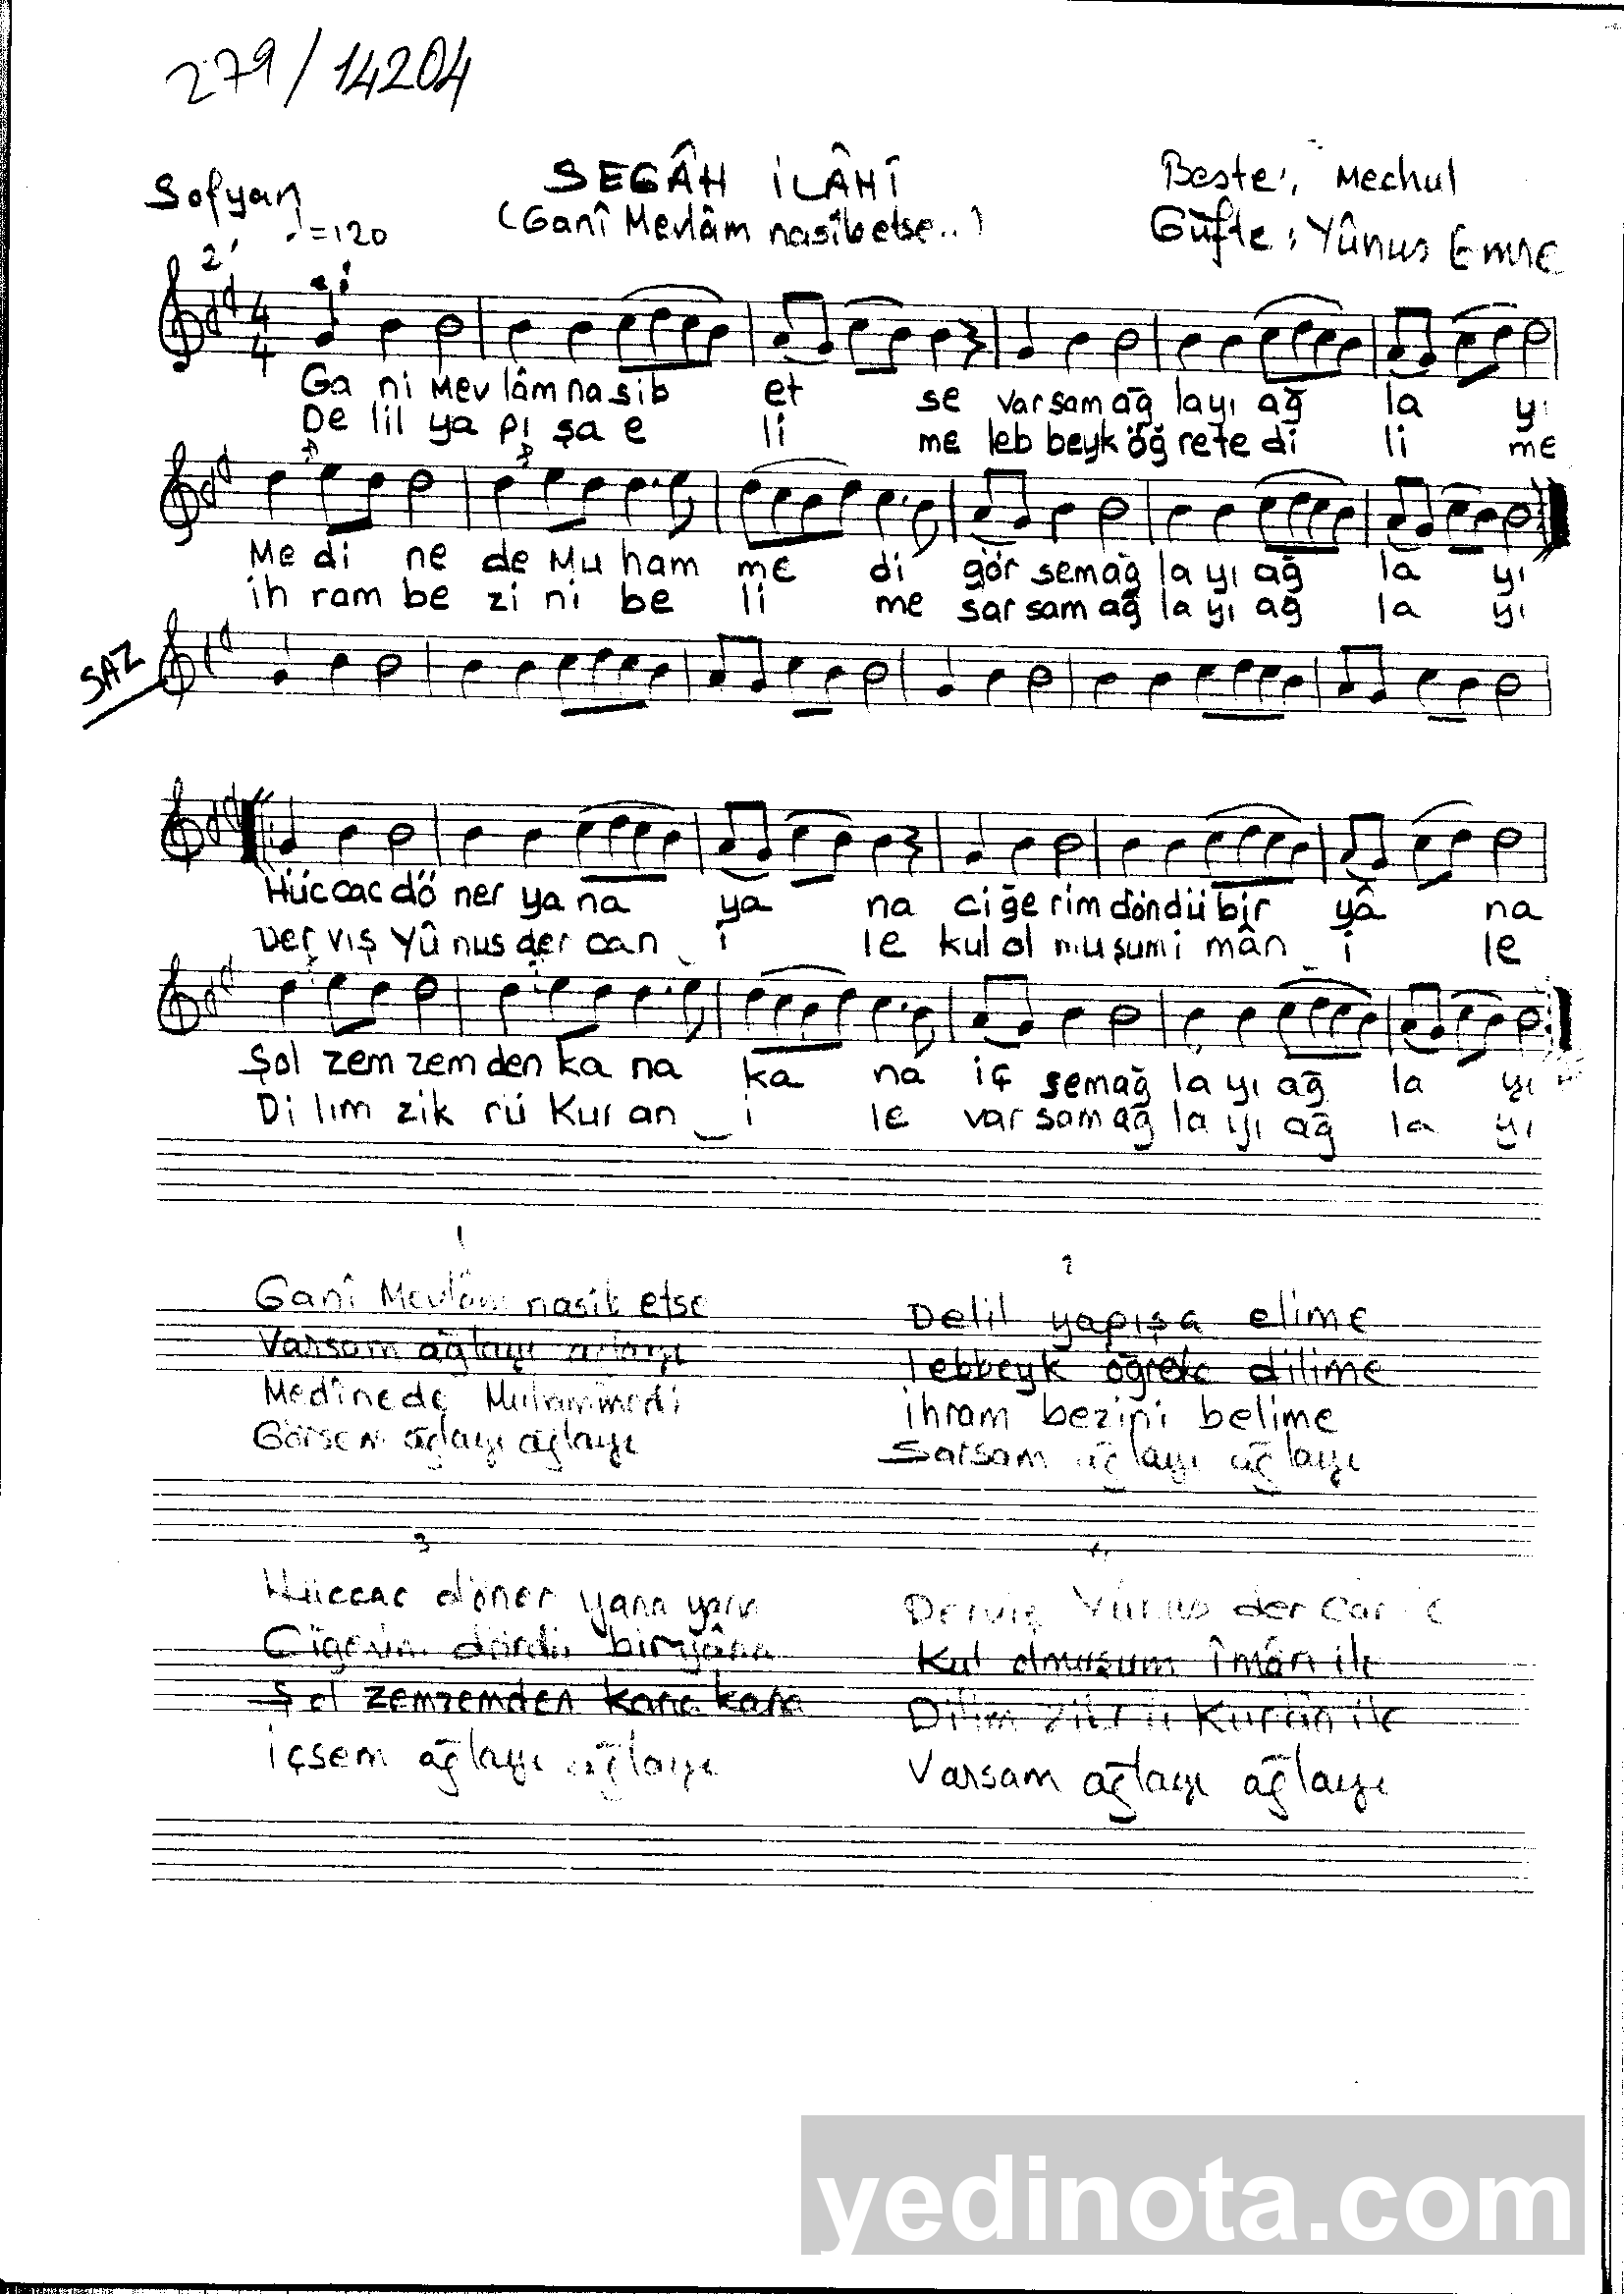 279/14204
Sofyan
SEGÂH İLÂHÎ
Beste: Mechul
(Ganî Mevlâm nasibetse..)
Güfte: Yûnus Emre
=120
2'
4
4
Ga ni Mev lâm na sib et se var sam ağ la yı ağ la yı
De lil ya pı şa e li me leb beyk öğ re te di li me
Me di ne de Mu ham me di gör sem ağ la yı ağ la yı
ih ram be zi ni be li me sar sam ağ la yı ağ la yı
SAZ
Hüc cac dö ner ya na ya na ci ğe rim döndü bir yâ na
Der viş Yû nus der can i le kul ol mu şum i mân i le
Şol zem zem den ka na ka na iç sem ağ la yı ağ la yı
Di lim zik rü Kur an i le var sam ağ la yı ağ la yı
1
Ganî Mevlâm nasib etse
Varsam ağlayı ağlayı
Medînede Muhammedi
Görsem ağlayı ağlayı
2
Delil yapışa elime
lebbeyk öğrete dilime
ihram bezini belime
Sarsam ağlayı ağlayı
3
Hüccac döner yana yana
Ciğerim döndü biryâna
Şol zemzemden kana kana
içsem ağlayı ağlayı
Derviş Yûnus der can
Kul olmuşum îmân ile
Dilim zikr ü Kur'ân ile
Varsam ağlayı ağlayı
yedinota.com